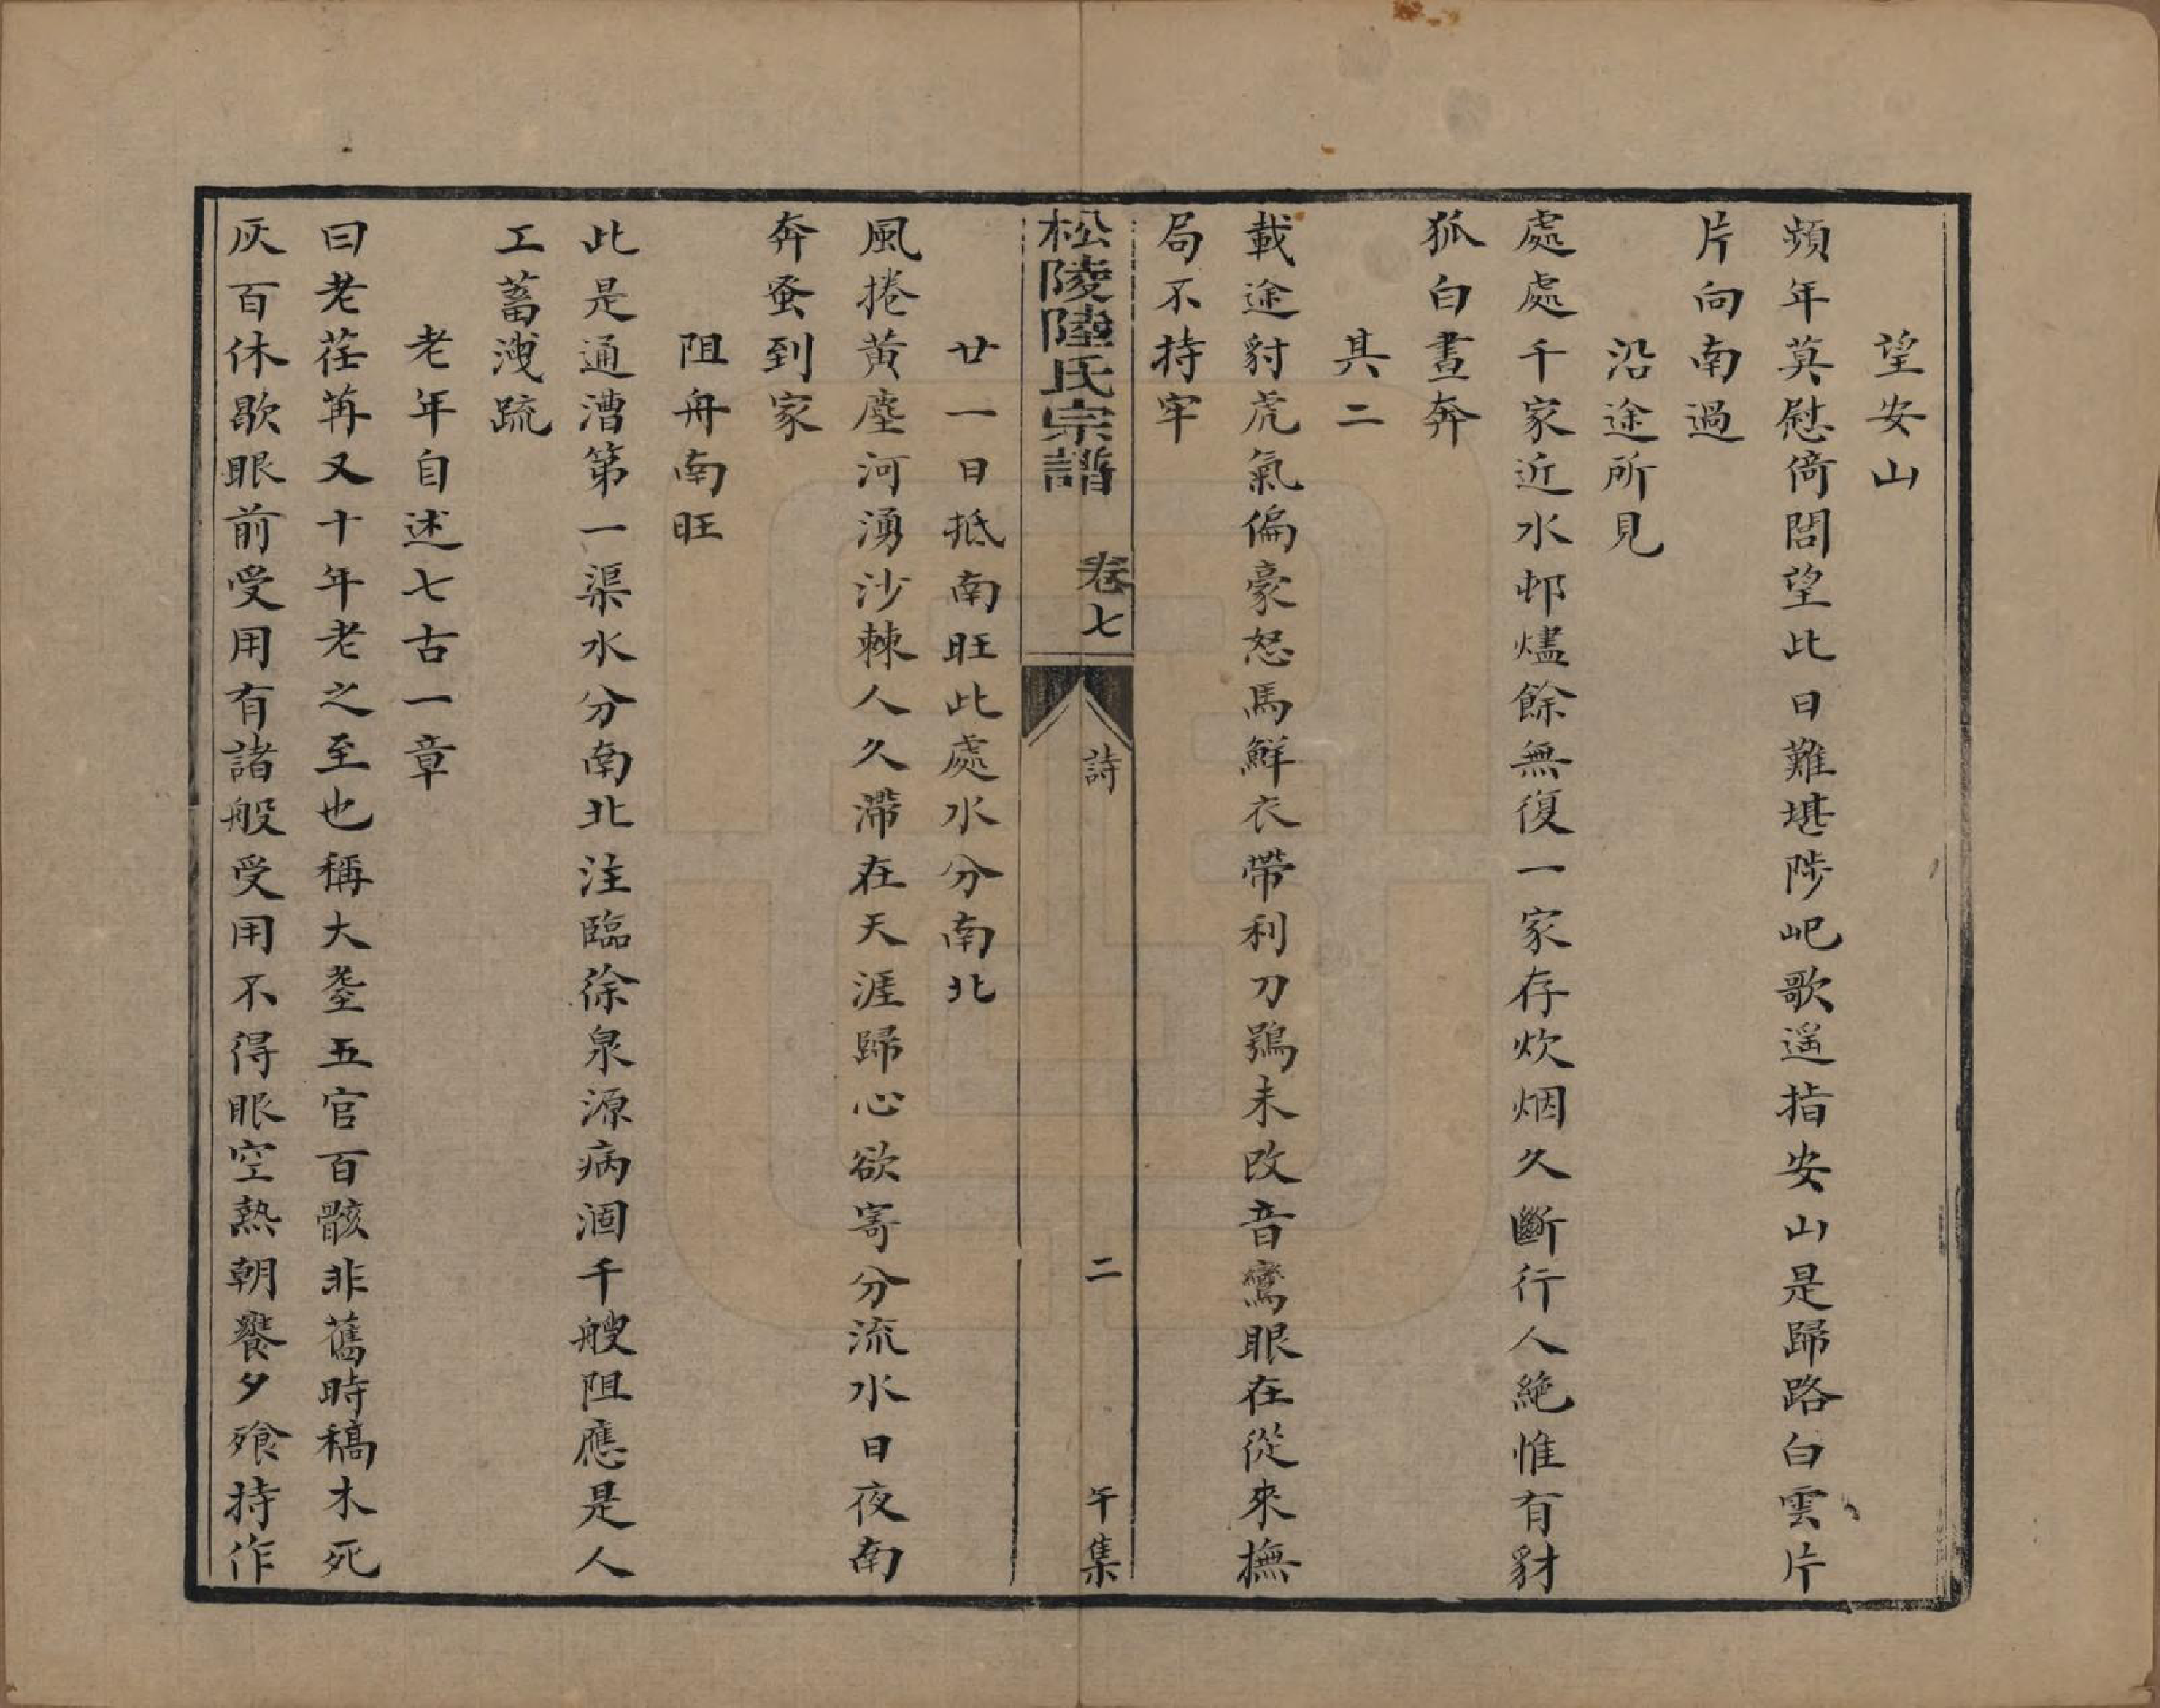 望安山
頻年莫慰倚閭望此日難堪陟屺歌遥指安山是歸路白雲片
片向南過
沿途所見
處處千家近水邨燼餘無復一家存炊烟久斷行人絶惟有豺
狐白晝奔
其二
載途豺虎氣偏豪怒馬鮮衣帶利刀鴞未改音鸞眼在從來撫
局不持牢
松陵陸氏宗譜 卷七 詩 二 午集
廿一日抵南旺此處水分南北
風捲黃塵河湧沙棘人久滯在天涯歸心欲寄分流水日夜南
奔蚤到家
阻舟南旺
此是通漕第一渠水分南北注臨徐泉源病涸千艘阻應是人
工蓄洩疏
老年自述七古一章
曰老荏苒又十年老之至也稱大耋五官百骸非舊時稿木死
灰百休歇眼前受用有諸般受用不得眼空熱朝饔夕飧持作